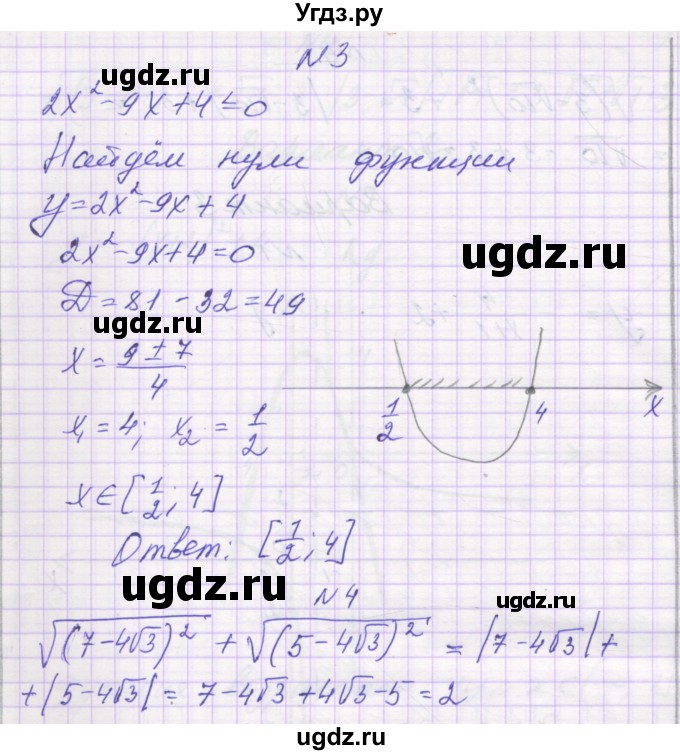 Угдз.ру
N3
ugdz.ru
2x² - 9x + 4 ≤ 0
Найдём нули функции
y = 2x² - 9x + 4
2x² - 9x + 4 = 0
ugdz.ru
Д = 81 - 32 = 49
ugdz.ru
x = (9 ± 7)/4
1/2 4 x
x₁ = 4; x₂ = 1/2
ugdz.ru
x ∈ [1/2; 4]
Ответ: [1/2; 4]
ugdz.ru
N4
ugdz.ru
√(7 - 4√3)² + √(5 - 4√3)² = |7 - 4√3| +
+ |5 - 4√3| = 7 - 4√3 + 4√3 - 5 = 2
ugdz.ru